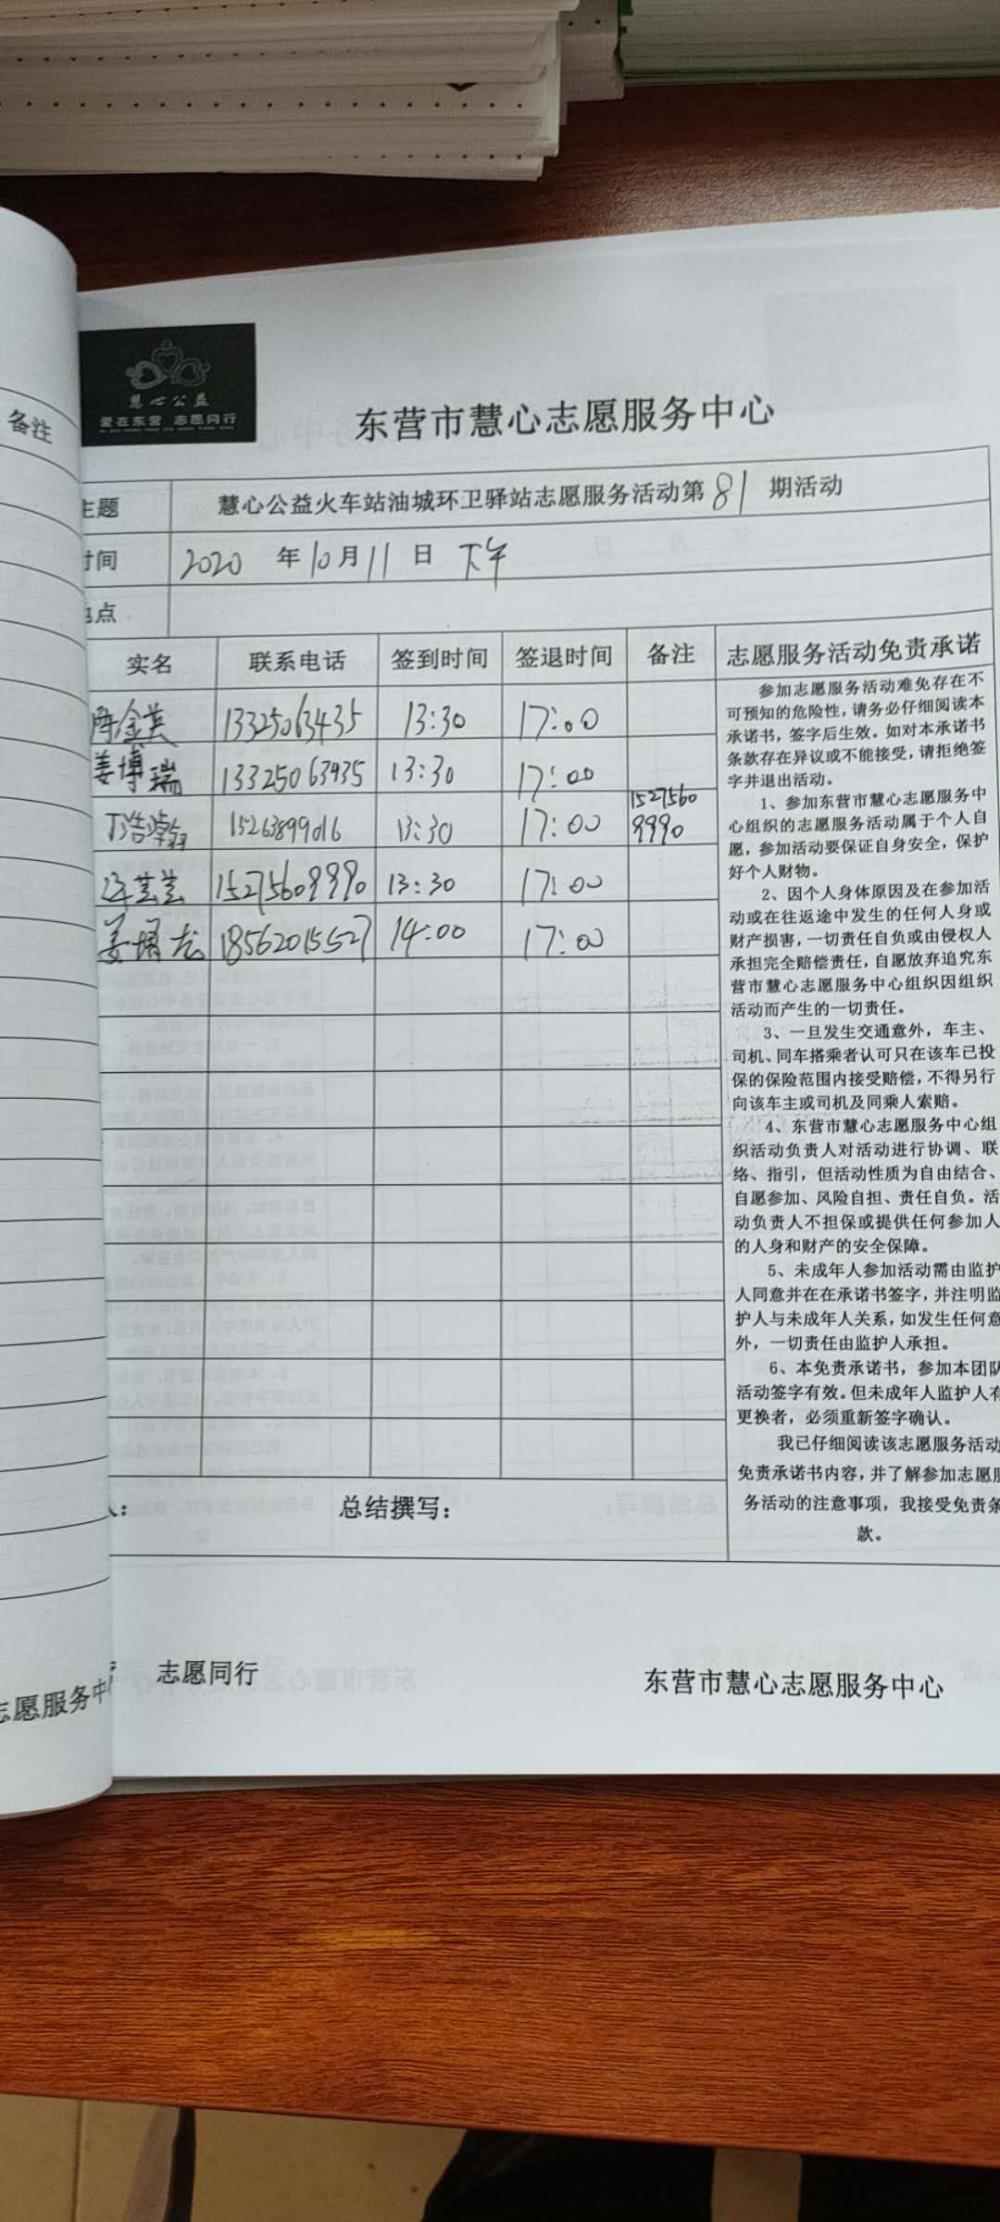 备注
慧心公益
爱在东营 志愿同行
东营市慧心志愿服务中心
主题 慧心公益火车站油城环卫驿站志愿服务活动第81期活动
时间 2020 年10月11日 下午
地点
实名 联系电话 签到时间 签退时间 备注 志愿服务活动免责承诺
13325063435 13:30 17:00
姜博瑞 13325063435 13:30 17:00
丁浩 15263899016 13:30 17:00 15275609990
15275609990 13:30 17:00
姜 18562015527 14:00 17:00
参加志愿服务活动难免存在不
可预知的危险性，请务必仔细阅读本
承诺书，签字后生效。如对本承诺书
条款存在异议或不能接受，请拒绝签
字并退出活动。
1、参加东营市慧心志愿服务中
心组织的志愿服务活动属于个人自
愿，参加活动要保证自身安全，保护
好个人财物。
2、因个人身体原因及在参加活
动或在往返途中发生的任何人身或
财产损害，一切责任自负或由侵权人
承担完全赔偿责任，自愿放弃追究东
营市慧心志愿服务中心组织因组织
活动而产生的一切责任。
3、一旦发生交通意外，车主、
司机、同车搭乘者认可只在该车已投
保的保险范围内接受赔偿，不得另行
向该车主或司机及同乘人索赔。
4、东营市慧心志愿服务中心组
织活动负责人对活动进行协调、联
络、指引，但活动性质为自由结合、
自愿参加、风险自担、责任自负。活
动负责人不担保或提供任何参加人
的人身和财产的安全保障。
5、未成年人参加活动需由监护
人同意并在在承诺书签字，并注明监
护人与未成年人关系，如发生任何意
外，一切责任由监护人承担。
6、本免责承诺书，参加本团队
活动签字有效。但未成年人监护人有
更换者，必须重新签字确认。
我已仔细阅读该志愿服务活动
免责承诺书内容，并了解参加志愿服
务活动的注意事项，我接受免责条
款。
人： 总结撰写：
志愿同行 东营市慧心志愿服务中心
志愿服务中